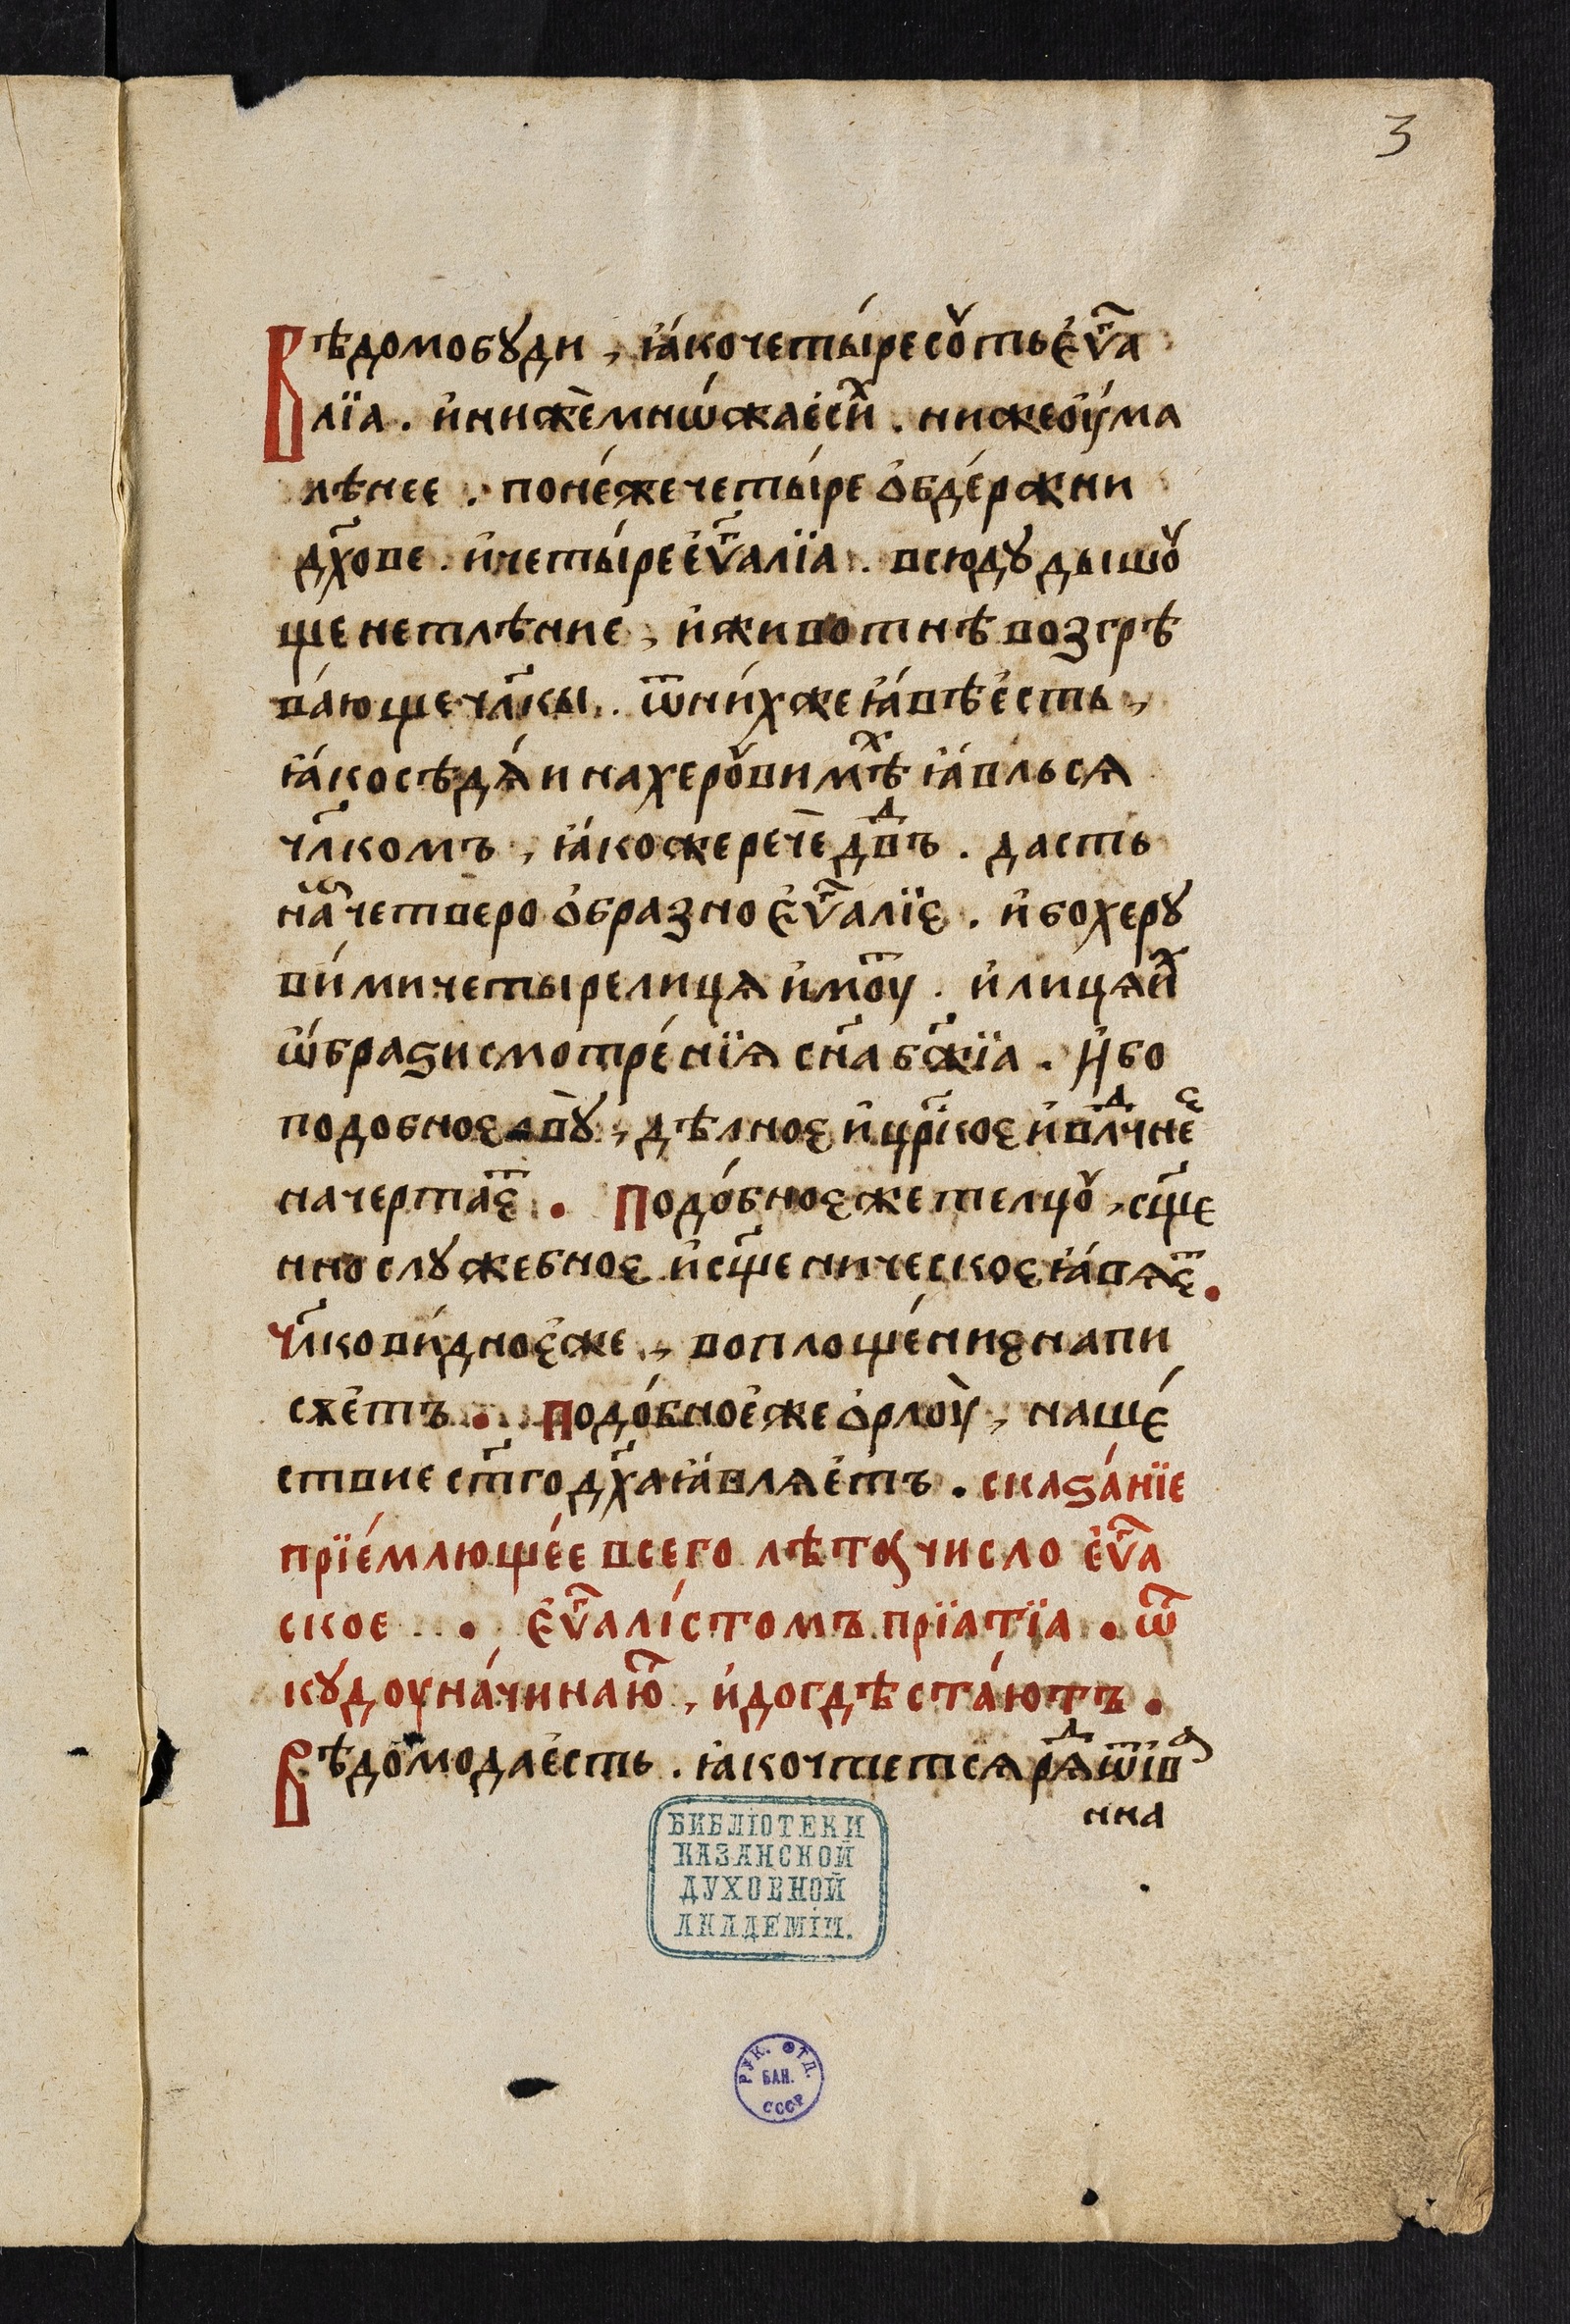 3
Вѣдомобꙋди, ꙗ҆́кочеты́ресꙋ́тьє҆ѵⷢ҇а
лїа. и҆нижѐмнѡ́жаес̾иⷯ. нижеоу҆ма
лѣнее. поне́жечеты́ре ѻ҆бде́ржни
дх҃ове. и҆четы́реє҆ѵⷢ҇алїа. всюдꙋ дышꙋ
щенетлѣние, и҆животнѣ возгрѣ
ва́ющечл҃кы. ѿни́хжеꙗ҆́вѣе҆сть,
ꙗ҆́косѣдѧ́и нахерꙋвимⷯѣ ꙗ҆́влься
чл҃комъ, ꙗ҆́кожеречѐ дв҃ⷣъ. дасть
на҃мъчетверо ѻ҆бразно є҆ѵⷢ҇алїє. и҆бохерꙋ
ви́мичетырелицѧ и҆мꙋⷮ. и҆лицѧи҆ⷯ
ѡ҆́браѕисмотре́нїѧ сн҃а бж҃їа. И҆бо
подобноєлвꙋ̀, дѣлноє и҆цр҃коє и҆влⷣчнеⷭ҇
начертаєⷮ. Подо́бноєжетелцꙋ̀, сщ҃е
ннослꙋжебноє и҆сщ҃еническоєꙗ҆́влѧєⷮ.
Чл҃кови́дноєже, воплоще́ниєнапи
сꙋе҆тъ. Подо́бное҆же ѻ҆рлоу̀, наше́
ствие ст҃го дх҃аꙗ҆́влѧе҆тъ. сказа́нїе
прїе́млюще́е всего лѣтꙋчисло е҆ѵⷢ҇а
ское. Є҆ѵⷢ҇алі́стомъ прїатїа. ѿ
кꙋ́доуна́чинаюⷮ, и҆догдѣ ста́ютъ.
Вѣдомодае́сть. ꙗкочтетсѧ рѧⷣ ѿів
нна
БИБЛІОТЕКИ
КАЗАНСКОЙ
ДУХОВНОЙ
АКАДЕМІИ.
РУК. ОТД.
БАН.
СССР